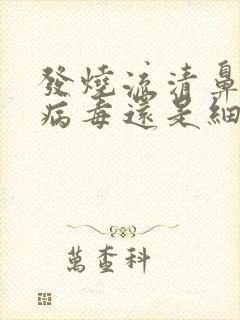 發燒流清鼻
病毒還是細
萬查科